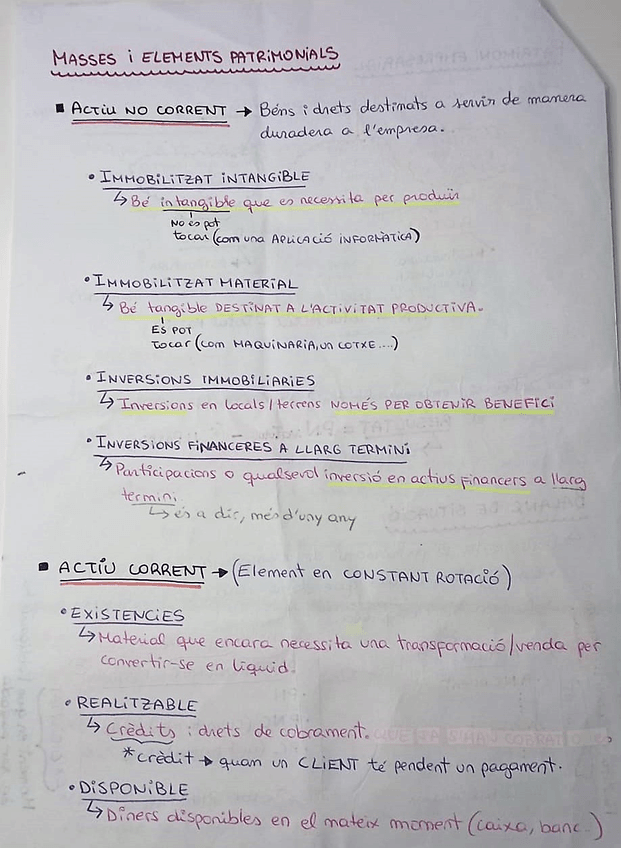 MASSES i ELEMENTS PATRIMONIALS
▪ ACTIU NO CORRENT → Béns i drets destinats a servir de manera
duradera a l'empresa.
• IMMOBILITZAT INTANGIBLE
↳ Bé intangible que es necessita per produir
No es pot
tocar (com una APLICACIÓ INFORMÀTICA)
• IMMOBILITZAT MATERIAL
↳ Bé tangible DESTINAT A L'ACTIVITAT PRODUCTIVA.
ES POT
tocar (com MAQUINARIA, un COTXE...)
• INVERSIONS IMMOBILIARIES
↳ Inversions en locals/terrens NOMÉS PER OBTENIR BENEFICI
• INVERSIONS FINANCERES A LLARG TERMINI
↳ Participacions o qualsevol inversió en actius financers a llarg
termini
↳ és a dir, més d'uny any
▪ ACTIU CORRENT → (Element en CONSTANT ROTACIÓ)
• EXISTENCIES
↳ Material que encara necessita una transformació/venda per
convertir-se en liquid.
• REALITZABLE
↳ Crèdits i drets de cobrament.
* crèdit → quam un CLIENT té pendent un pagament.
• DISPONIBLE
↳ Diners disponibles en el mateix moment (caixa, banc..)